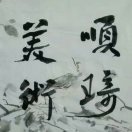 順琦
美術